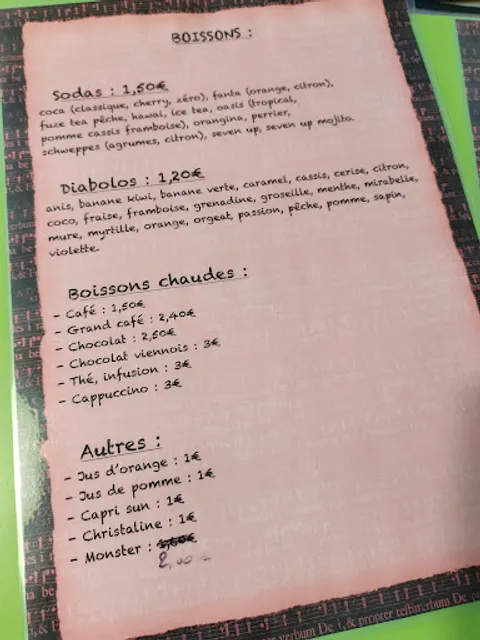 BOISSONS :
Sodas : 1,50€
coca (classique, cherry, zéro), fanta (orange, citron),
fuze tea pêche, hawai, ice tea, oasis (tropical,
pomme cassis framboise), orangina, perrier,
schweppes (agrumes, citron), seven up, seven up mojito.
Diabolos : 1,20€
anis, banane kiwi, banane verte, caramel, cassis, cerise, citron,
coco, fraise, framboise, grenadine, groseille, menthe, mirabelle,
mure, myrtille, orange, orgeat, passion, pêche, pomme, sapin,
violette.
Boissons chaudes :
- Café : 1,50€
- Grand café : 2,40€
- Chocolat : 2,50€
- Chocolat viennois : 3€
- Thé, infusion : 3€
- Cappuccino : 3€
Autres :
- Jus d'orange : 1€
- Jus de pomme : 1€
- Capri sun : 1€
- Christaline : 1€
- Monster : 1,60€
2,00 €